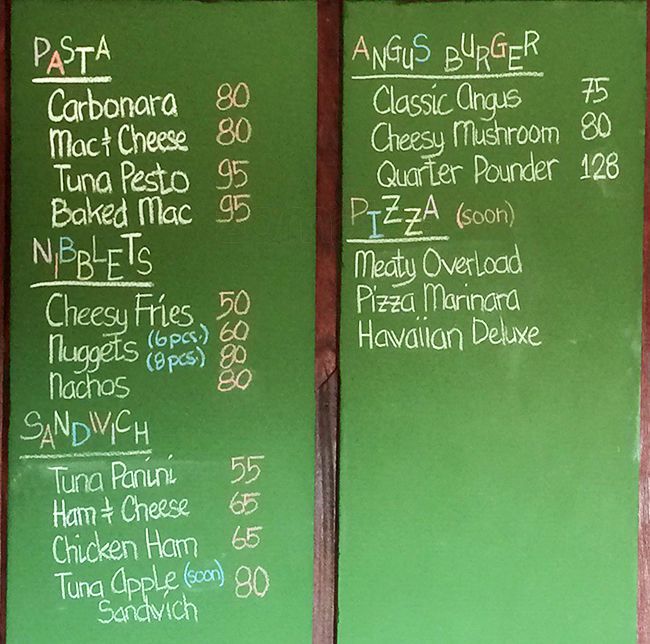 PASTA
Carbonara 80
Mac & Cheese 80
Tuna Pesto 95
Baked Mac 95
NIBBLETS
Cheesy Fries 50
Nuggets (6pcs.) 60
(8pcs.) 80
Nachos 80
SANDWICH
Tuna Panini 55
Ham & Cheese 65
Chicken Ham 65
Tuna Apple (soon) 80
Sandwich
ANGUS BURGER
Classic Angus 75
Cheesy Mushroom 80
Quarter Pounder 128
PIZZA (soon)
Meaty Overload
Pizza Marinara
Hawaiian Deluxe